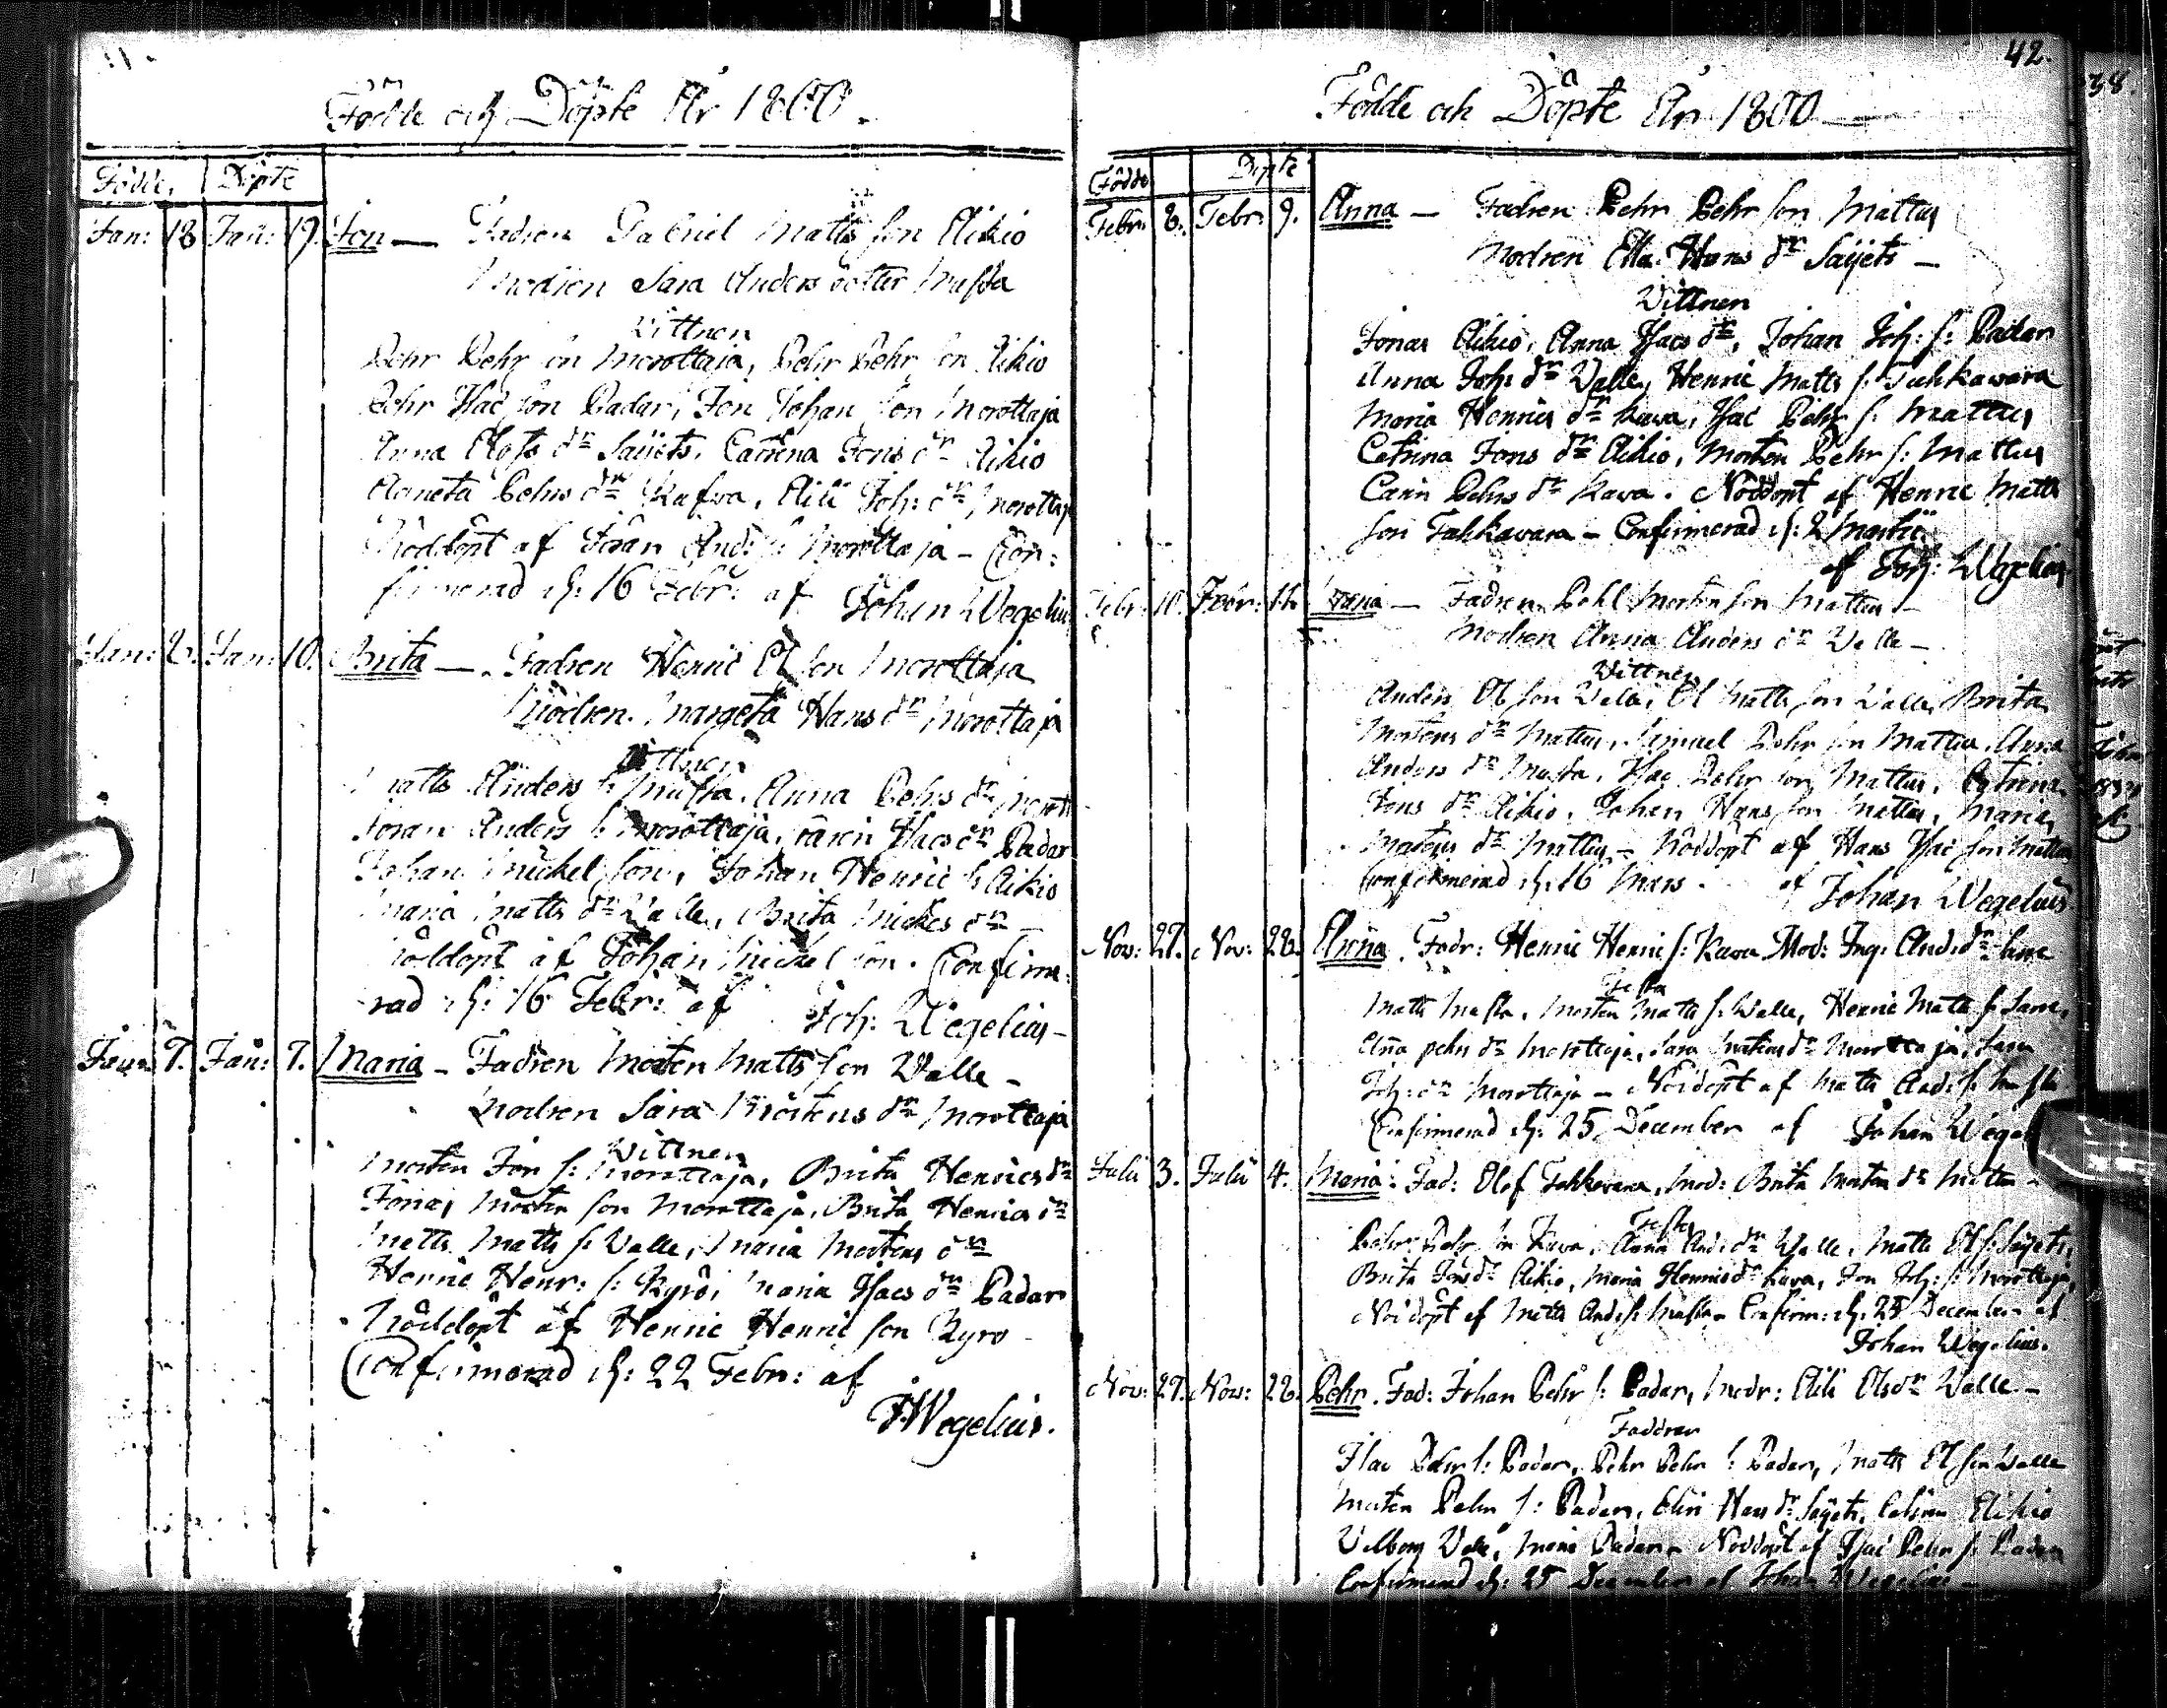 Födde och Döpte År 1800.
Födde, Döpte
Jan: 18 Jan: 19. Jon — Fadren Gabriel Matts son Aikio
Modren Sara Anders dotter Mussta
Wittnen
Pehr Pehr son Morottaja, Pehr Pehr son Aikio
Pehr Isac son Padar, Jon Johan son Morottaja
Anna Olofs dr Saijets, Catrina Jons dr Aikio
Agneta Pehrs dr Kafwa, Aili Joh: dr Morottaja
Nöddöpt af Jöran And: s: Morottaja – Con:
firmerad d: 16 Febr: af Johan Wegelius
Jan: Jan: 10. Brita — Fadren Henric Ol son Morottaja
Modren Margeta Hans dr Morottaja
Wittnen
Matts Anders s: Mussta, Anna Pehrs dr Morott
Jöran Anders s: Morottaja, Carin Isacs dr Padar
Johan Mickel son, Johan Henric s: Aikio
Maria Matts dr Walle, Brita Mickels dr
Nöddöpt af Johan Mickel son. Confirme:
rad d: 16 Febr: af Joh: Wegelius –
Jan: 7. Jan: 7. Maria – Fadren Morten Matts son Walle –
Modren Sara Mortens dr Morottaja
Wittnen
Morten Jon s: Morottaja, Brita Henrics dr
Jonas Morten son Morottaja, Brita Henrics dr
Matts Matts s: Walle, Maria Mortens dr
Henric Henr: s: Kyrö, Maria Isacs dr Padar
Nöddöpt af Henric Henric son Kyrö
Confirmerad d: 22 Febr: af
J. Wegelius.
42.
Födde och Döpte År 1800
Födde Döpte
Febr: 8. Febr: 9. Anna — Fadren Pehr Pehr son Mattus
Modren Ella Hans dr Saijets –
Wittnen
Jonas Aikio, Anna Isacs dr, Johan Joh: s: Padar
Anna Joh: dr Valle, Henric Matts s: Tuhkawara
Maria Henrics dr Kawa, Isac Pehr s: Mattus
Catrina Jons dr Aikio, Morten Pehr s: Mattus
Carin Pehrs dr Kawa. Nöddöpt af Henric Matts
son Tuhkawara – Confirmerad d: 2 Martii
af Joh: Wegelius
Febr: 10. Febr: 11. – Fadren Pohl Morten son Mattus –
Modren Anna Anders dr Valle –
Wittnen
Anders Ol son Valle, Ol Matts son Valle, Brita
Mortens dr Mattus, Samuel Pehr son Mattus, Anna
Anders dr Mussta, Isac Pehr son Mattus, Catrina
Jons dr Aikio, Johan Hans son Mattus, Maria
Mortens dr Mattus – Nöddöpt af Hans Isac son Mattus
Confirmerad d: 16 Mars. af Johan Wegelius
Nov: 27. Nov: 28. Anna. Fadr: Henric Henric s: Kawa Mod: Ing: And: dr Sare
Testa
Matts Mussta, Morten Matts s: Walle, Henric Matts s: Sare,
Anna pehrs dr Morottaja, Sara Mortens dr Morottaja, Sara
Joh: dr Morottaja – Nöddöpt af Matts And: s: Mussta
Confirmerad d: 25 December af Johan Wegel
Julii 3. Julii 4. Maria: Fad: Olof Tuhkawara, Mod: Brita Morten dr Mattus –
Testes
Pehr Pehr son Kawa, Anna And: dr Walle, Matts Ol s: Saijets,
Brita Jons dr Aikio, Maria Henrics dr Kawa, Jon Joh: s: Morottaja,
Nöddöpt af Matts And: s: Mussta – Confirm: d: 25 December af
Johan Wegelius.
Nov: 27. Nov: 28. Pehr. Fad: Johan Pehr s: Padar, Modr: Aili Ols dr Walle –
Faddrar
Isac Pehr s: Padar, Pehr Pehr s: Padar, Matts Ol son Walle
Morten Pehr s: Padar, Elin Hans dr Saijets, Catrina Aikio
Valborg Valle, Maria Padar – Nöddöpt af Isac Pehr s: Padar
Confirmerad d: 25 December af Johan Wegelius –
38.